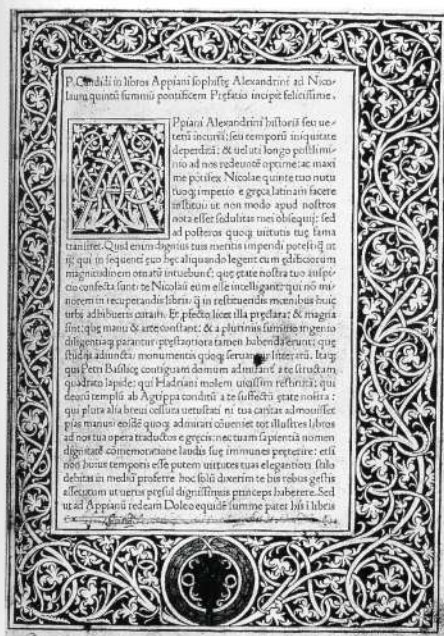 P. Candidi in libros Appiani sophistę Alexandrini ad Nico-
laum quintū summū pontificem Pręfatio incipit felicissime.
APpiani Alexandrini historiā seu ue-
terū incuria; seu temporū iniquitate
deperditā; & uelut longo postlimi-
nio ad nos redeuntē optime; ac maxi
me pōtifex Nicolae quinte tuo nutu
tuoq; imperio e gręca latinam facere
institui ut non modo apud nostros
nota esset sedulitas mei obsequij: sed
ad posteros quoq; uirtutis tuę fama
transiret. Quid enim dignius tuis meritis impendi potest q̄ ut
ij; qui in sequenti ęuo hęc aliquando legent cum ędificiorum
magnitudinem ornatū intuebunt; quę ętate nostra tuo auspi-
cio confecta sunt; te Nicolaū eum esse intelligant; qui nō mi-
norem in recuperandis libris; q̄ in restituendis mœnibus huic
urbi adhibueris curam. Et pfecto licet illa pręclara; & magna
sint; quę manu & arte constant; & a plurimis summo ingenio
diligentiaq; parantur; pręstantiora tamen habenda erunt; quę
studijs adiuncta; monumentis quoq; seruantur litterarū. Itaq;
qui Petri Basilicę contiguam domum admirant a te structam
quadrato lapide; qui Hadriani molem uicissim restitutā; qui
deorū templū ab Agrippa conditū a te suffectū ętate nostra;
qui plura alia breui cessura uetustati ni tua caritas admouisset
pias manus; eosdē quoq; admirari cōueniet tot illustres libros
ad nos tua opera traductos e gręcis; nec tuam sapientia nomen
dignitatē comemoratione laudis suę immunes pręterire: etsi
non huius temporis esse putem uirtutes tuas elegantiori stilo
debitas in mediū proferre hoc solū dixerim te his rebus gestis
assecutum ut uerus pręsul dignissimus princeps haberere. Sed
ut ad Appianū redeam Doleo equidē summe pater his i libris